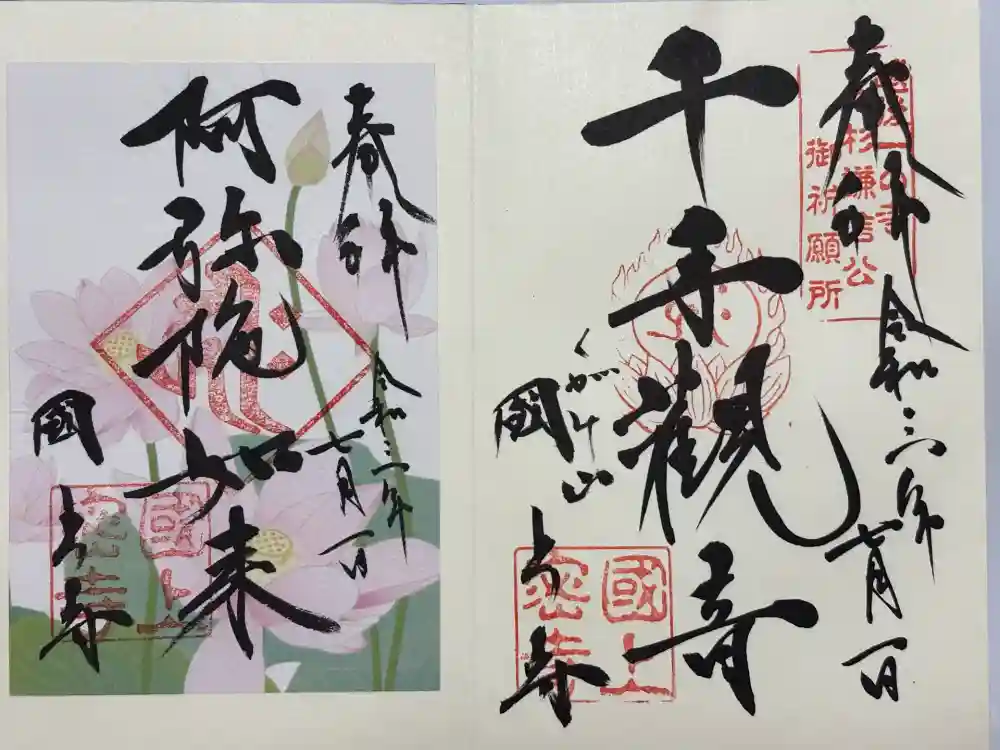 奉拝
令和三年
七月一日
越後一の寺
上杉謙信公
御祈願所
千手観音
くがみ山
國上寺
國上
密寺
奉拝
令和三年
七月一日
阿弥陀如来
國上寺
國上
密寺